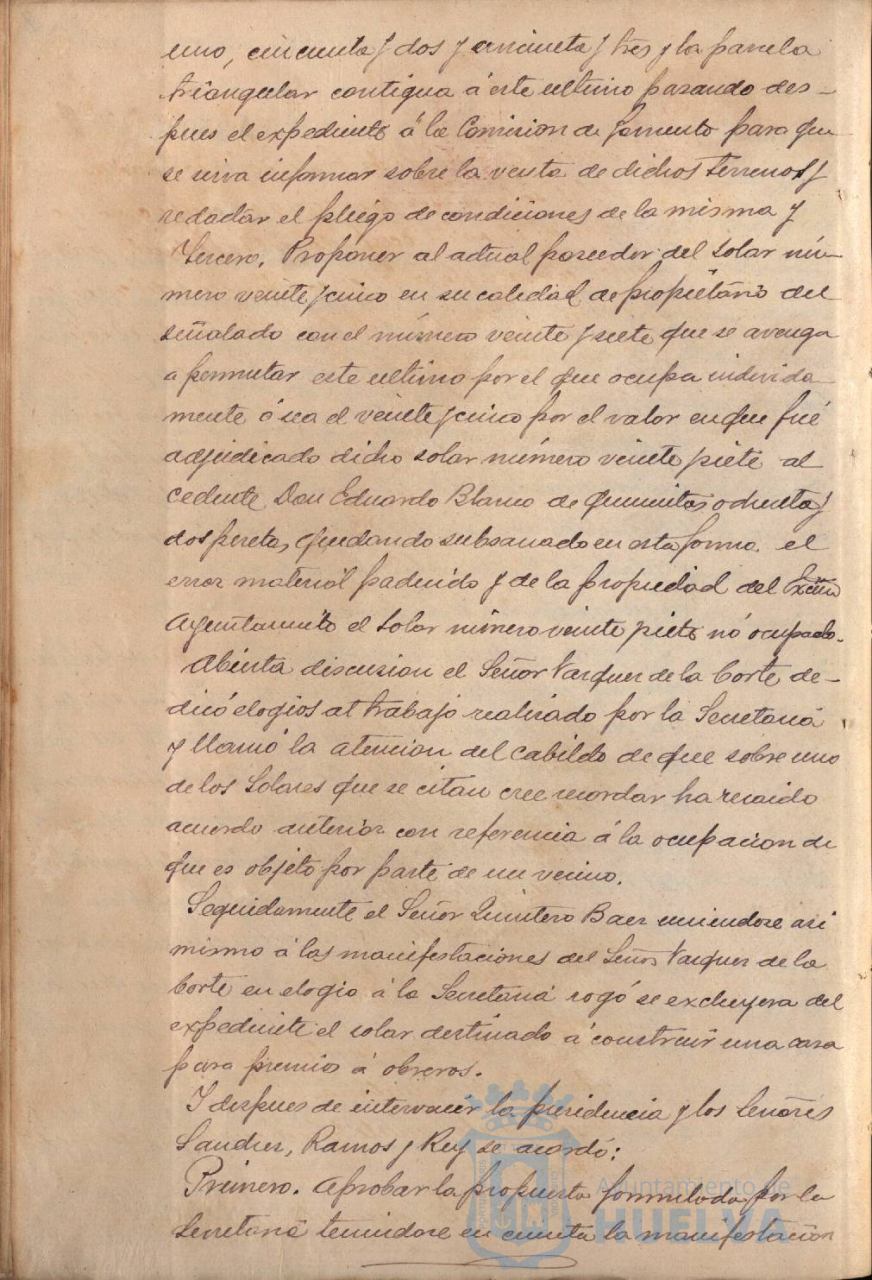 uno, cincuenta y dos y cincuenta y tres y la parcela
triangular contigua á este ultimo pasando des-
pues el expediente á la Comision de Fomento para que
se sirva informar sobre la venta de dichos terrenos y
redactar el pliego de condiciones de la misma y
Tercero. Proponer al actual poseedor del solar nú-
mero veinte y cinco en su calidad de propietario del
señalado con el número veinte y siete que se avenga
a permutar este ultimo por el que ocupa indevida
mente ó sea el veinte y cinco por el valor en que fué
adjudicado dicho solar número veinte y siete al
cedente Don Eduardo Blanco de quinientas ochenta y
dos pesetas, quedando subsanado en esta forma el
error material padecido y de la propiedad del Excmo
Ayuntamiento el solar número veinte y siete nó ocupado.
Abierta discusion el Señor Vazquez de la Corte de-
dicó elogios al trabajo realizado por la Secretaría
y llamó la atencion del cabildo de que sobre uno
de los solares que se citan cree recordar ha recaido
acuerdo anterior con referencia á la ocupacion de
que es objeto por parte de un vecino.
Seguidamente el Señor Quintero Baez uniendose asi
mismo á las manifestaciones del Señor Vazquez de la
Corte en elogio á la Secretaría rogó se excluyera del
expediente el solar destinado á construir una casa
para premio á obreros.
Y despues de intervenir la presidencia y los Señores
Sanchez, Ramos y Rey se acordó:
Primero. Aprobar la propuesta formulada por la
Secretaría teniendose en cuenta la manifestacion
Ayuntamiento de
HUELVA